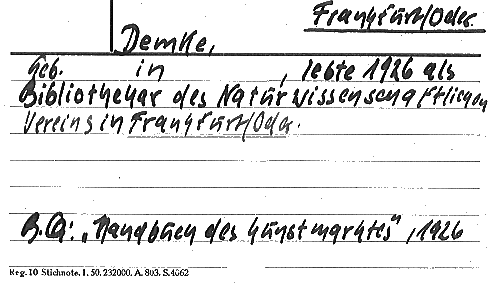 Frankfurt/Oder.
Demke,
Geb. in , lebte 1926 als
Bibliothekar des Naturwissenschaftlichen
Vereins in Frankfurt/Oder.
B.Q.: „Handbuch des Kunstmarktes", 1926
Reg. 10 Stichnote. I. 50. 232000. A. 803. S. 4662